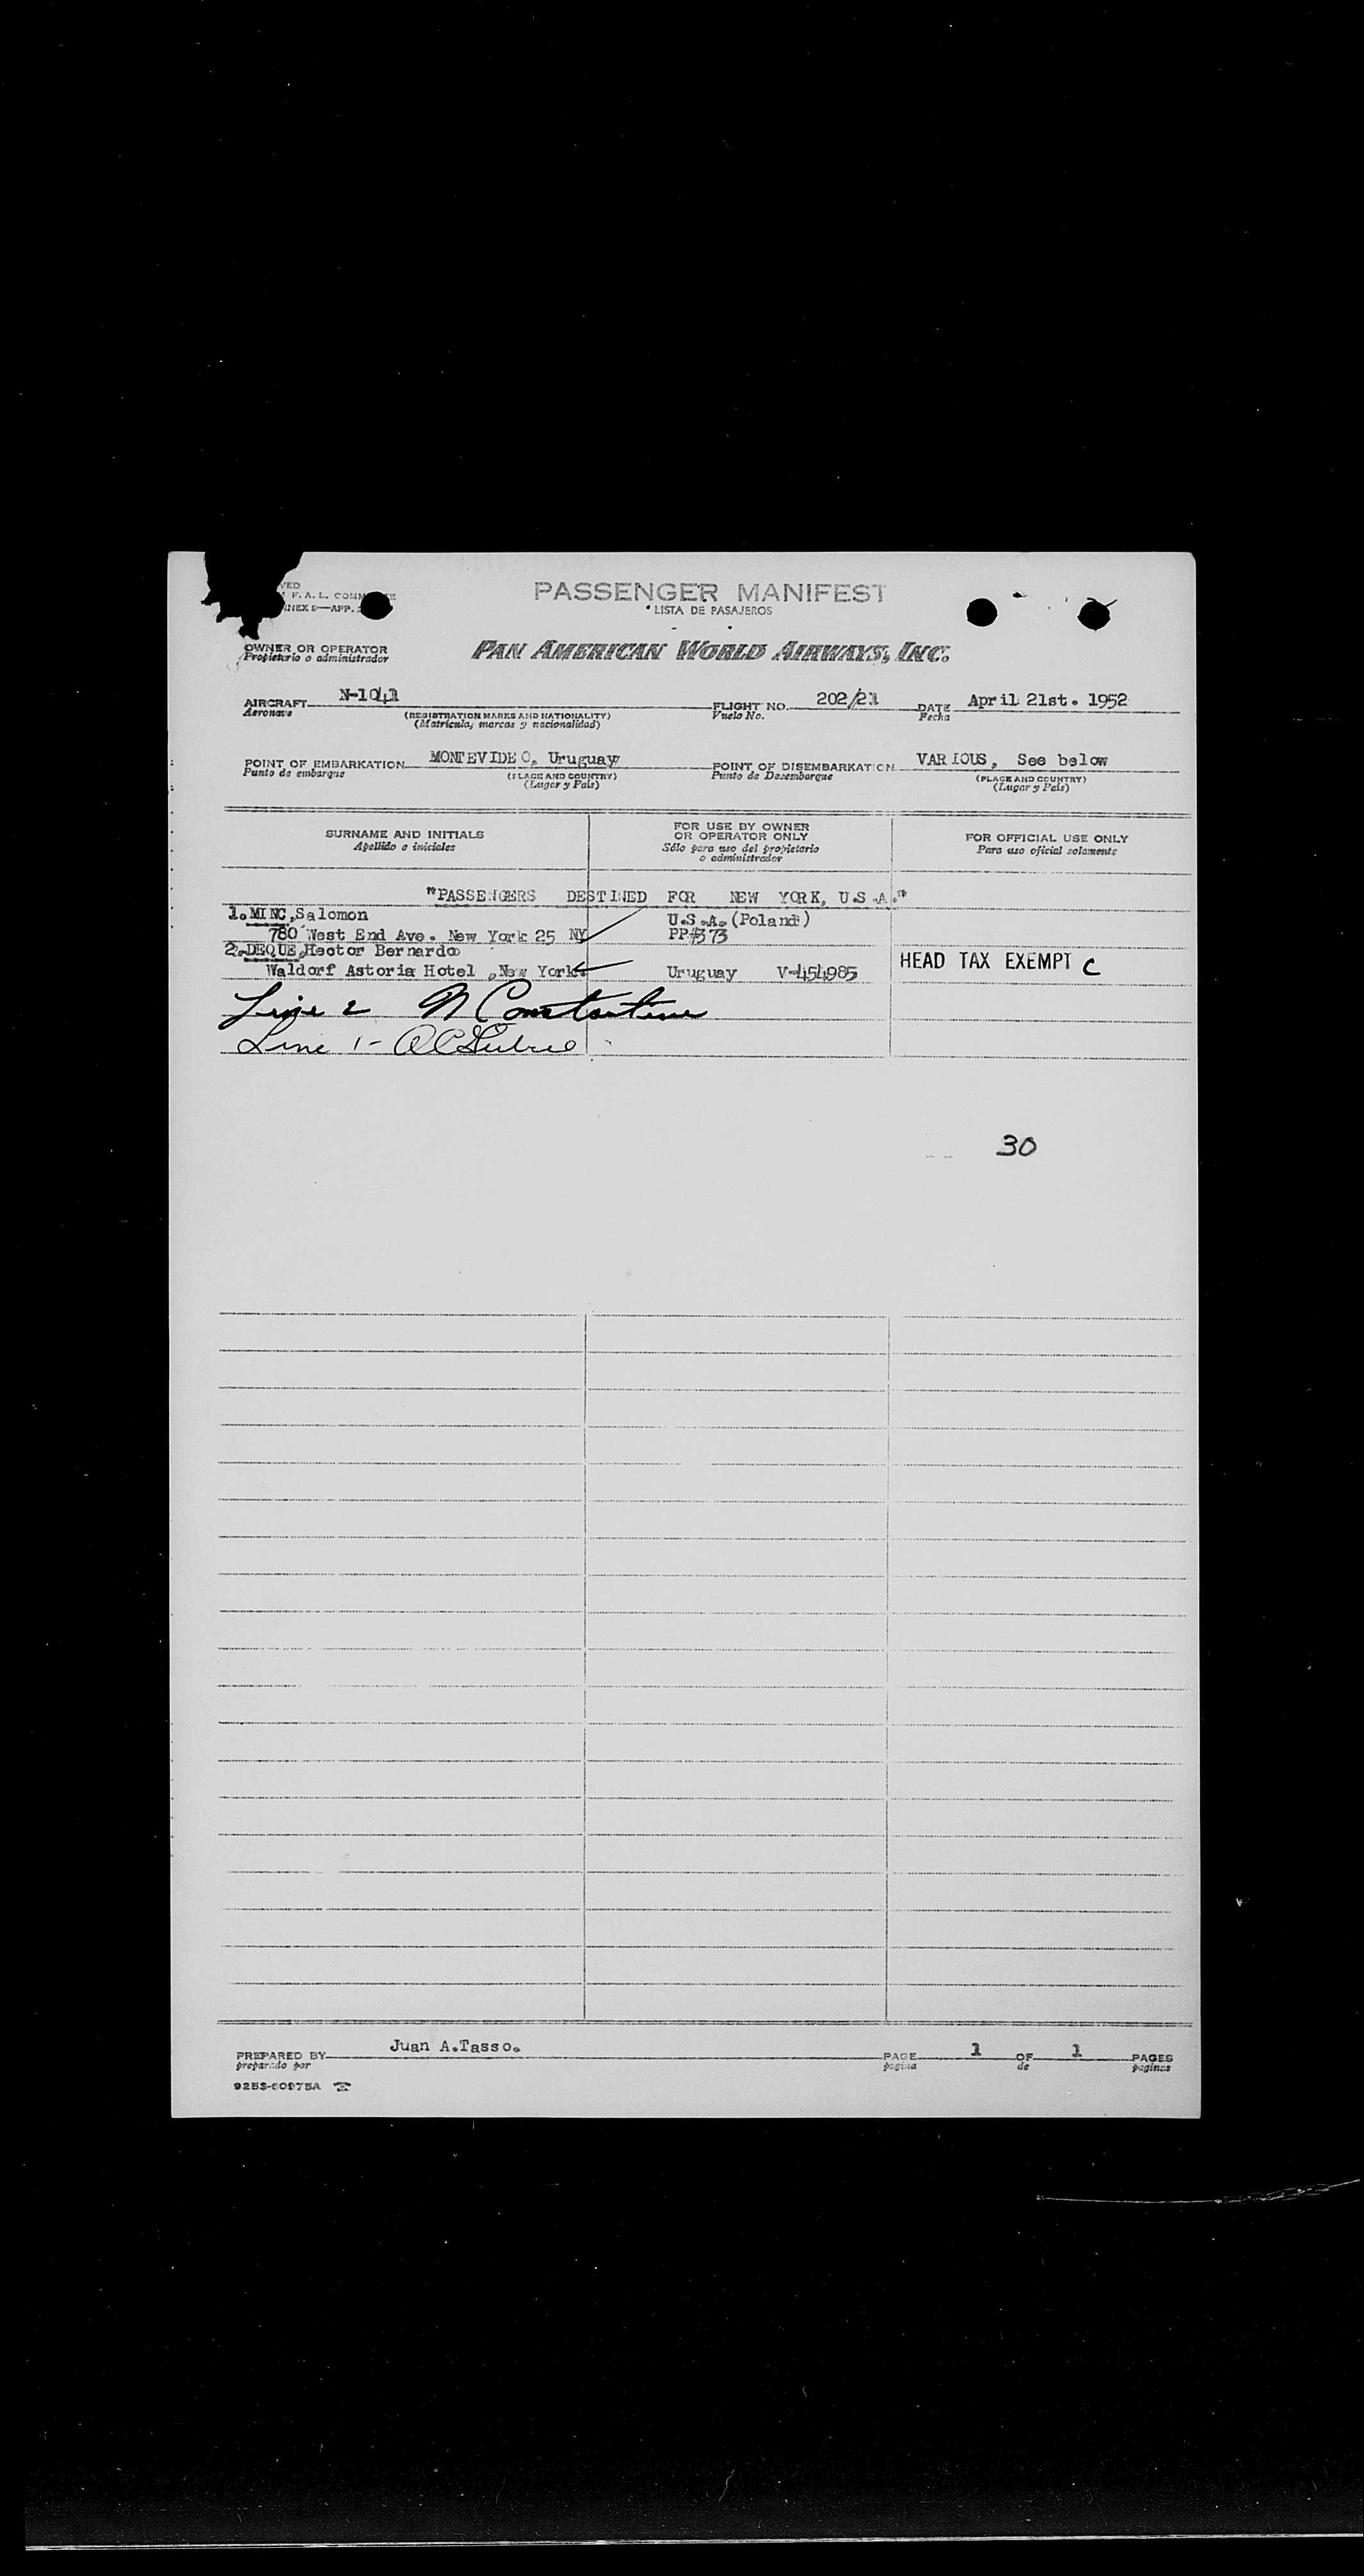 PASSENGER MANIFEST
LISTA DE PASAJEROS
F. A. L.
OWNER OR OPERATOR
Propietario o administrador
PAN AMERICAN WORLD AIRWAYS, INC.
AIRCRAFT N-1041 FLIGHT NO. 202/21 DATE April 21st. 1952
Aeronave (REGISTRATION MARKS AND NATIONALITY) Vuelo No. Fecha
(Matrícula, marcas y nacionalidad)
POINT OF EMBARKATION MONTEVIDEO, Uruguay POINT OF DISEMBARKATION VARIOUS, See below
Punto de embarque (PLACE AND COUNTRY) Punto de Desembarque (PLACE AND COUNTRY)
(Lugar y País) (Lugar y País)
SURNAME AND INITIALS
Apellido e iniciales
FOR USE BY OWNER
OR OPERATOR ONLY
Sólo para uso del propietario
o administrador
FOR OFFICIAL USE ONLY
Para uso oficial solamente
"PASSENGERS DESTINED FOR NEW YORK, U.S.A."
1.MINC,Salomon U.S.A.(Poland)
780 West End Ave. New York 25 NY PP#373
2.DEQUE,Hector Bernardo
Waldorf Astoria Hotel ,New York Uruguay V-454985 HEAD TAX EXEMPT C
Line 2 N Constantine
Line 1-
30
PREPARED BY Juan A.Tasso. PAGE 1 OF 1 PAGES
preparado por pagina de paginas